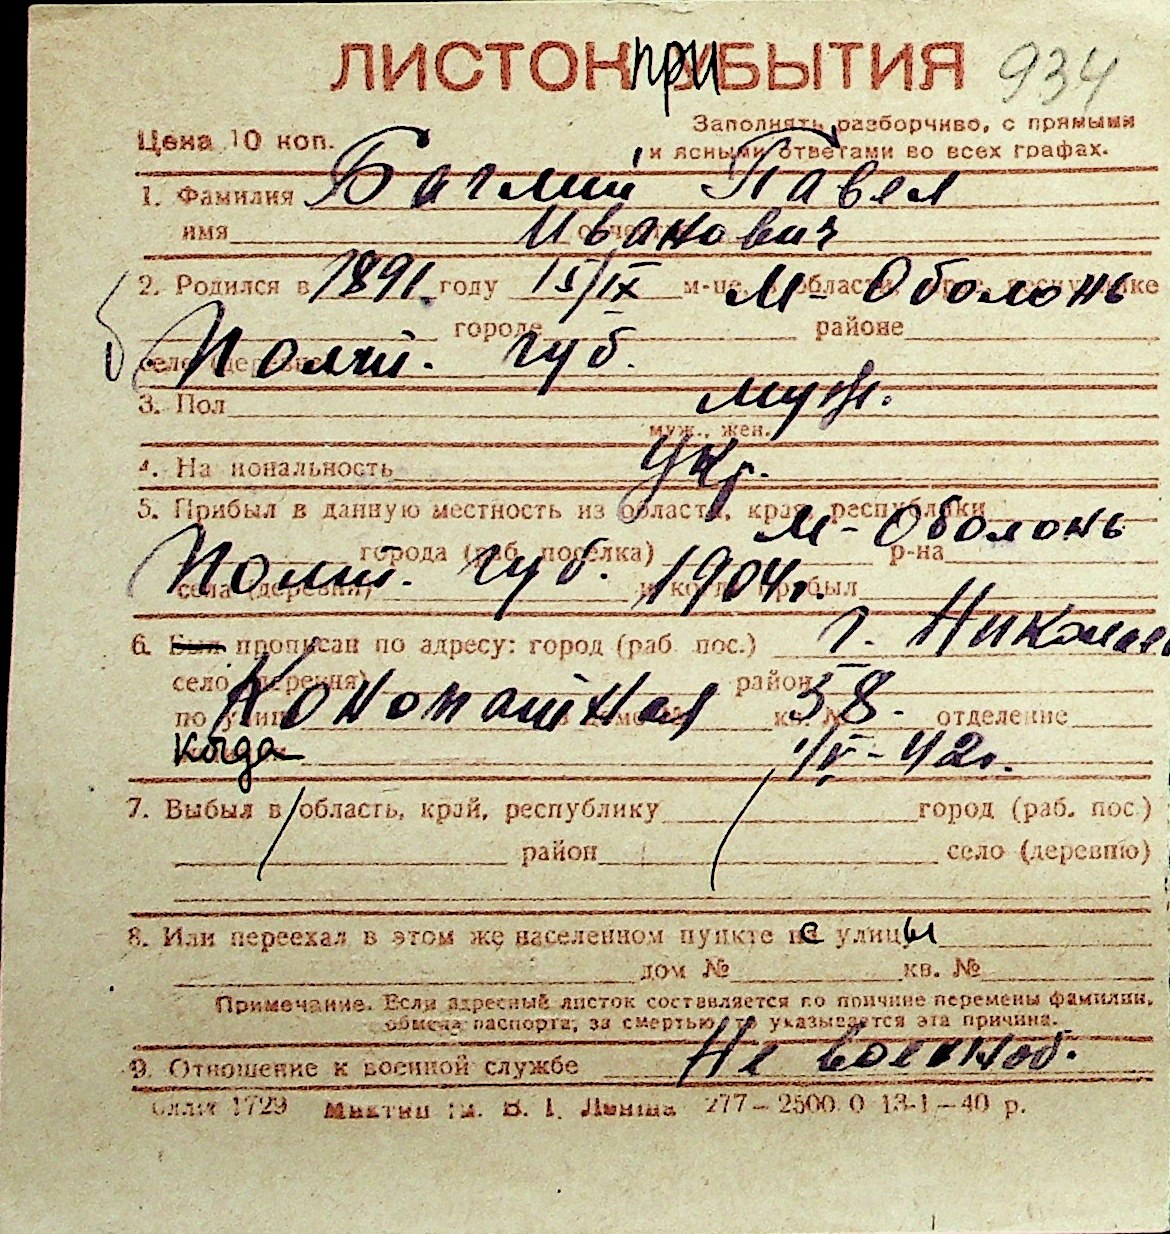 ЛИСТОК прибытия 934
Цена 10 коп. Заполнять разборчиво, с прямыми
и ясными ответами во всех графах.
1. Фамилия Баглий Павел
имя Иванович
2. Родился в 1891 году 15/IX м-це, в области, крае, республике М-Оболонь
городе районе
село (деревне) Полт. губ.
3. Пол муж.
муж., жен.
4. Национальность укр.
5. Прибыл в данную местность из области, края, республики
М-Оболонь
города (раб. поселка) р-на
села (деревни) Полт. губ. и когда прибыл 1904г.
6. Был прописан по адресу: город (раб. пос.) г. Николаев
село (деревня) район
по улице 58. отделение
когда 1/V-42г.
7. Выбыл в область, край, республику город (раб. пос.)
район село (деревню)
8. Или переехал в этом же населенном пункте с улицы
дом № кв. №
Примечание. Если адресный листок составляется по причине перемены фамилии,
обмена паспорта, за смертью, то указывается эта причина.
9. Отношение к военной службе Не военнооб.
1729 Миктип ім. В. І. Леніна 277—2500.0 13-1—40 р.